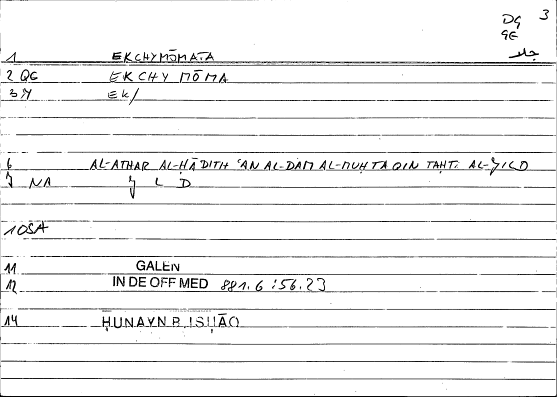 DG 3
GE
1 EKCHYMŌMATA جلد
2 QG EKCHYMŌMA
3 Y EK/
6 AL-ATHAR AL-ḤĀDITH ʿAN AL-DAM AL-MUḤTAQIN TAḤTA AL-JILD
J NA J L D
10 SA
11 GALEN
12 IN DE OFF MED 881.6 : 56.23
14 ḤUNAYN B. ISḤĀQ